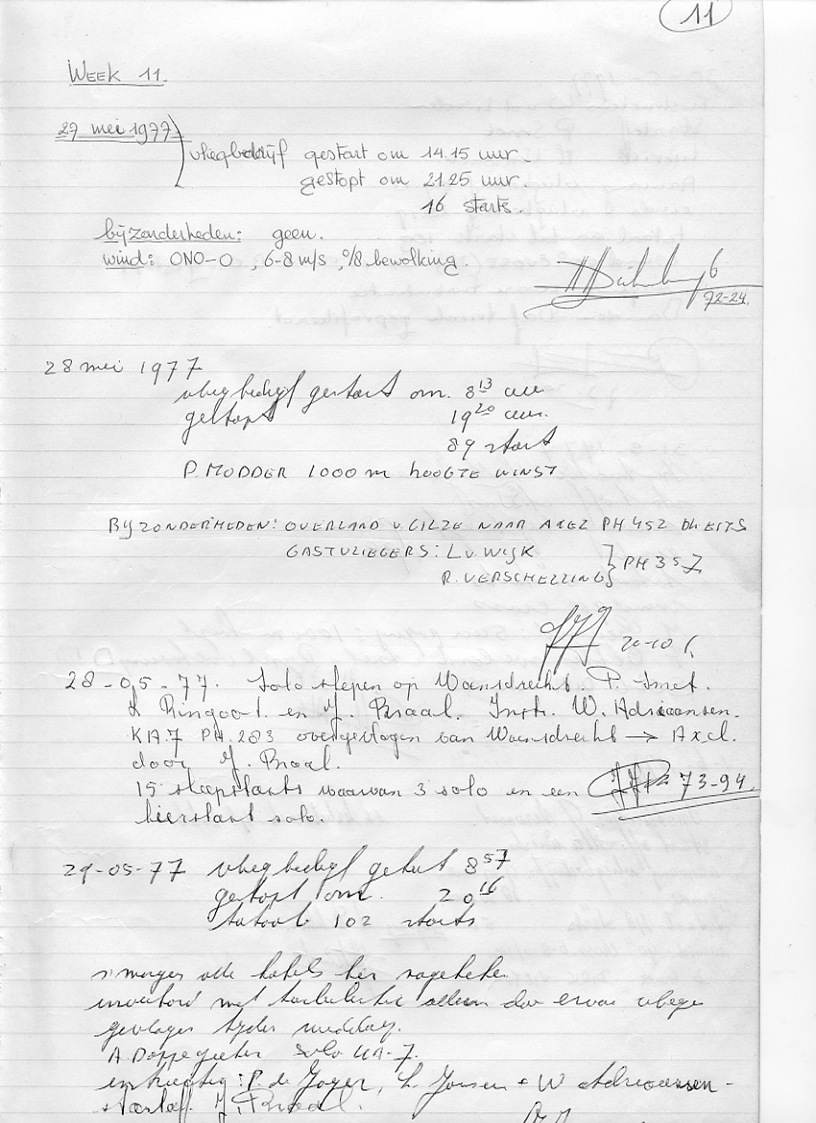 11
WEEK 11.
27 mei 1977
vliegbedrijf gestart om 14.15 uur.
gestopt om 21.25 uur.
16 starts.
bijzonderheden: geen.
wind: ONO-O, 6-8 m/s, 0/8 bewolking.
72-24.
28 mei 1977
vliegbedrijf gestart om. 8 13 uur
gestopt 19 20 uur.
89 start
P. MODDER 1000 m HOOGTE WINST
BIJZONDERHEDEN: OVERLAND v. GILZE NAAR AXEL PH 452
GASTVLIEGERS: L. v. WIJK
R. VERSCHELLING } PH 357
28-05-77. Solo slepen op Woensdrecht. P. Smet.
Ringoot. en J. Braal. Instr. W. Adriaansen.
KA.7 PH.283 overgevlogen van Woensdrecht → Axel.
door J. Braal.
15 sleepstarts waarvan 3 solo en een 73-94.
lierstart solo.
29-05-77 vliegbedrijf 8 57
gestopt om. 20 16
totaal 102 starts
s'morgens alle kabels
met turbulentie alleen
middag.
A Doppegieter solo KA-7.
P. de Jager, Jansen + W Adriaansen-
J. Braal.